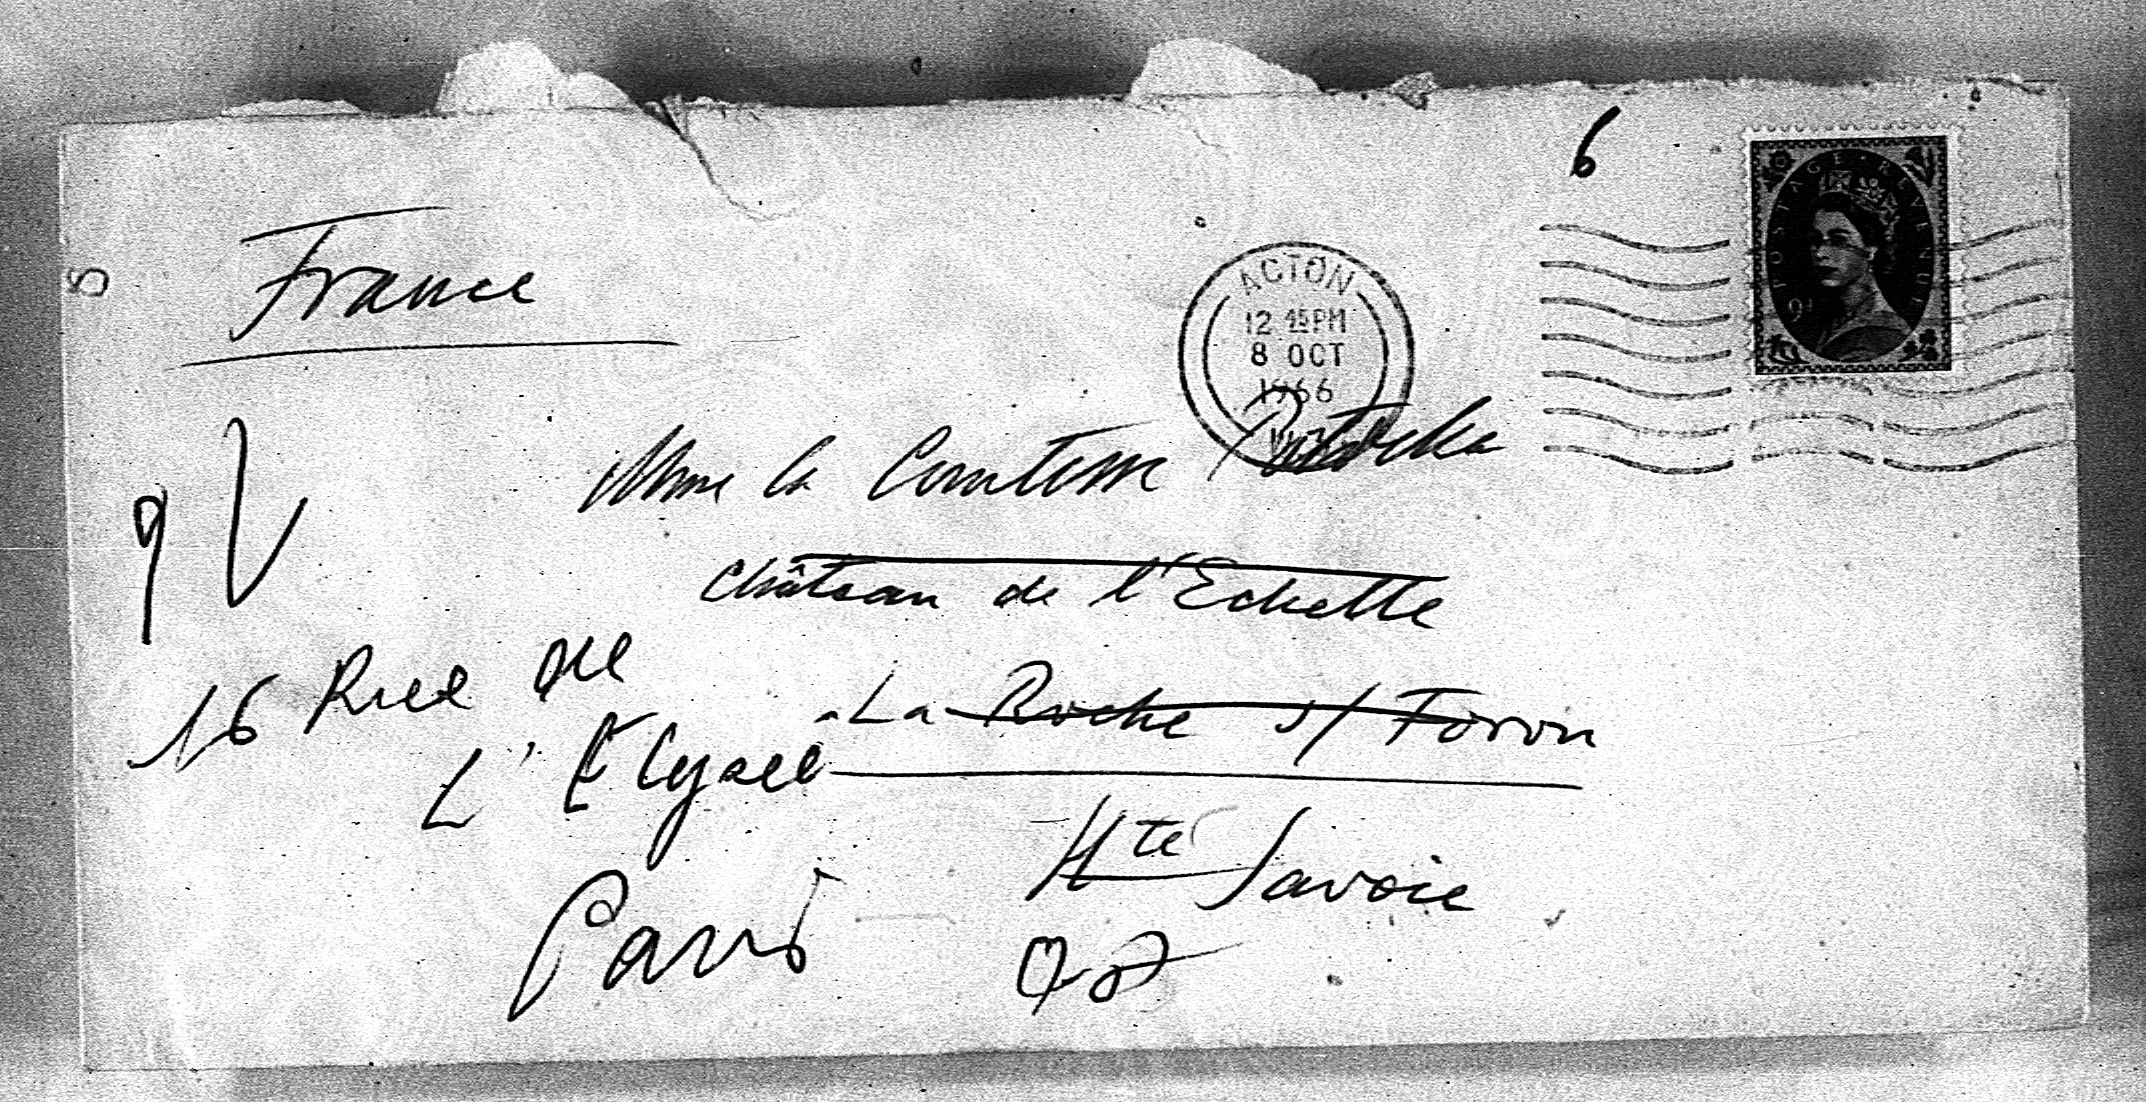 6
POSTAGE REVENUE
9D
ACTON
12 45 PM
8 OCT
1966
France
Mme la Comtesse Potocka
Château de l'Echelle
La Roche s/ Foron
Hte Savoie
16 Rue de
L'Elysee
Paris